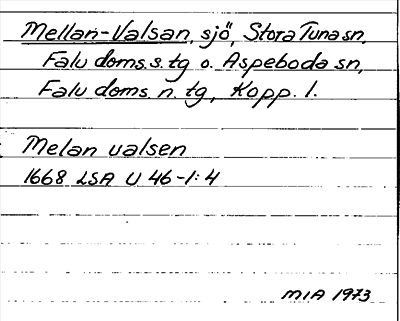 Mellan-Valsan, sjö, Stora Tuna sn,
Falu doms. s. tg o. Aspeboda sn,
Falu doms. n. tg, Kopp. l.
Melan ualsen
1668 LSA U 46-1:4
MIA 1973